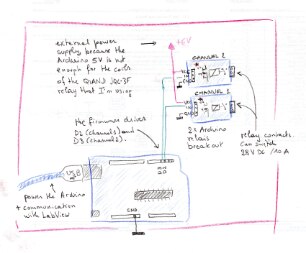 +6V
external power
supply, because the
Arduino 5V is not
enough for the coils
of the
relay that I'm using
CHANNEL 2
CHANNEL 1
the firmware drives
D2 (channel 1) and
D3 (channel 2).
2x Arduino
relais
breakout
relay contacts.
Can switch
28V DC / 10A
USB
power the Arduino
+ communication
with LabView
GND